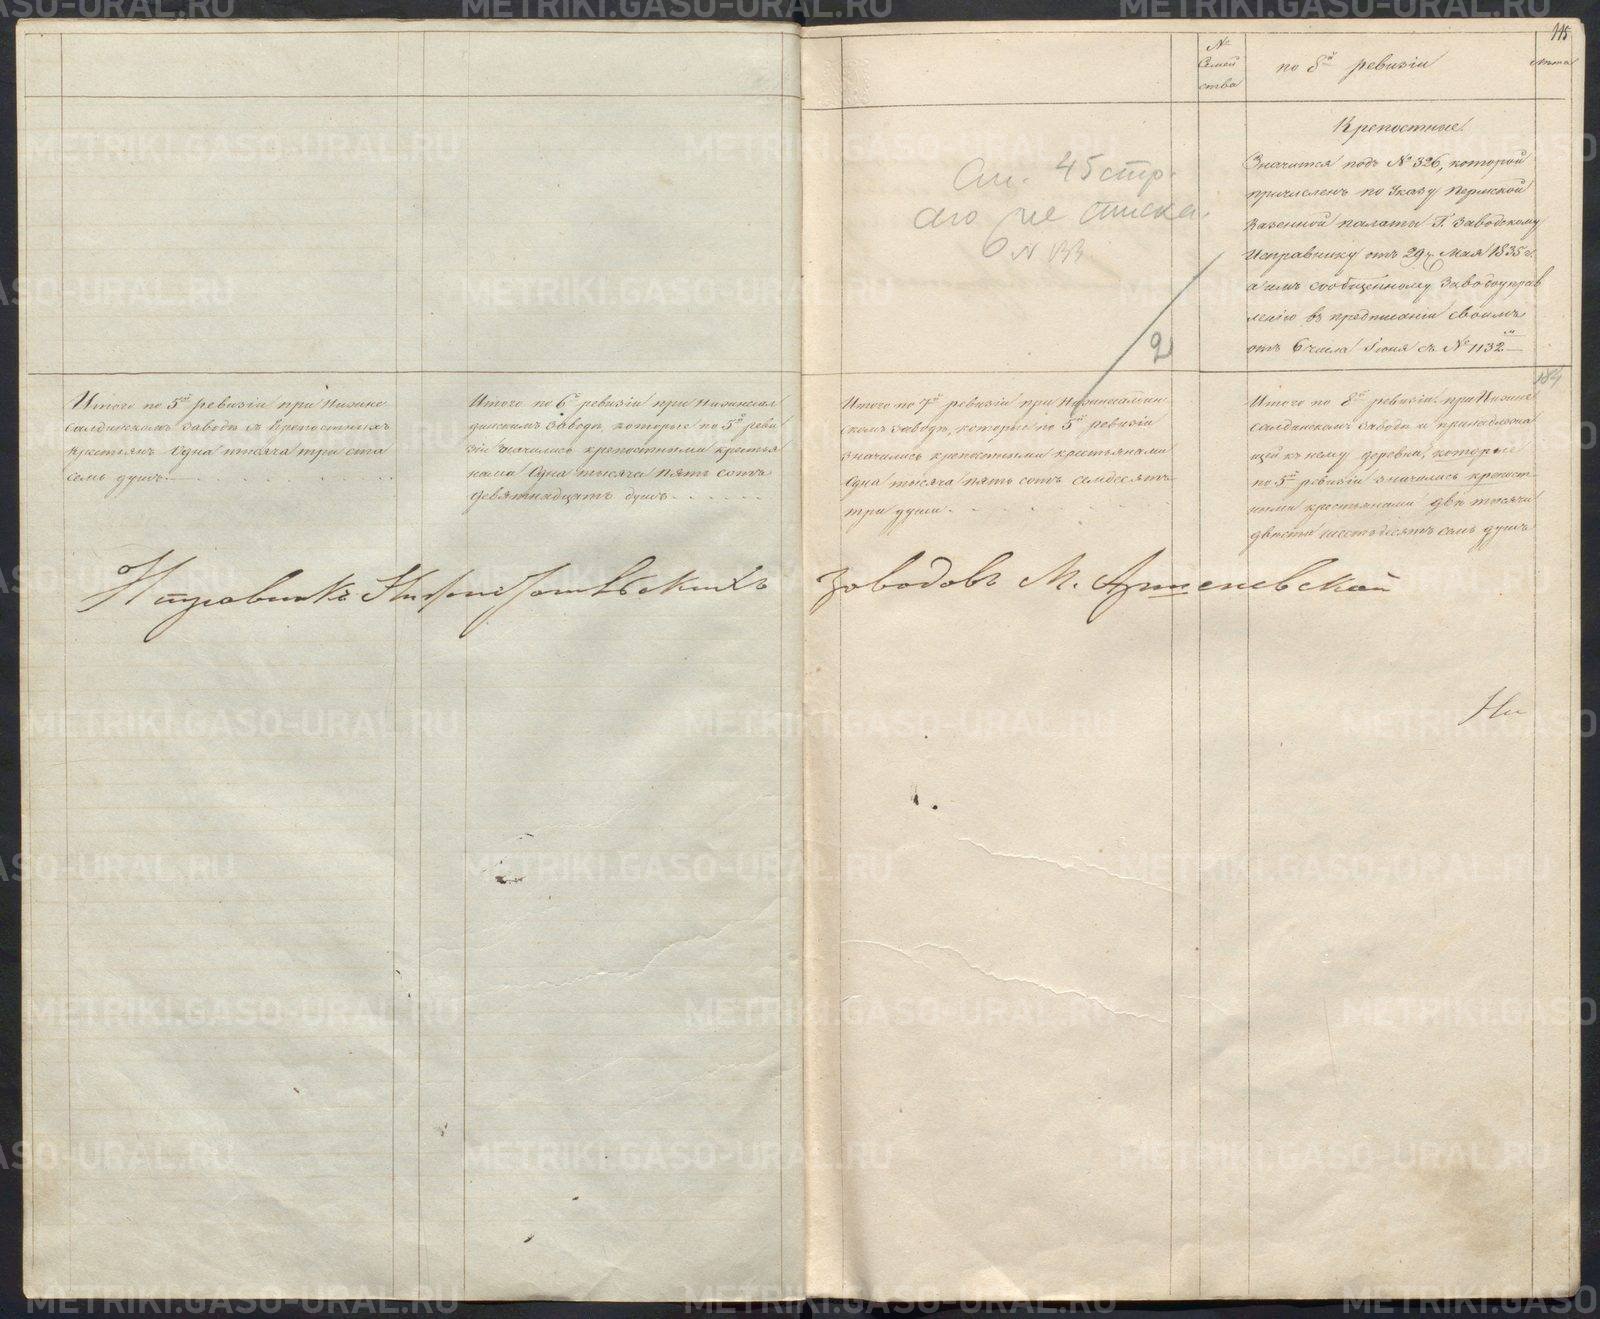 115
№
Семей
ства
по 8й ревизіи
лѣта
Крепостные.
Значится подъ № 326, которой
причисленъ по Указу Пермской
Казенной палаты Г. Заводскому
Исправнику отъ 29го Мая 1835 г.
а имъ сообщенному Заводоуправ
ленію въ предписаніи своимъ
отъ 6 числа Іюня съ № 1132м
См. 45 стр.
списка
N 133.
2
184
Итого по 5й ревизіи при Нижне
салдинскомъ Заводѣ съ Крепостныхъ
крестьянъ Одна тысяча три ста
семь душъ
Итого по 6й ревизіи при Нижнесал
динскомъ Заводѣ, которые по 5й реви
зіи значились крепостными крестья
нами Одна тысяча пять сотъ
девятнадцать душъ
Итого по 7й ревизіи при Нижнесалдин
скомъ Заводѣ, которые по 5й ревизіи
значились крепостными крестьянами
Одна тысяча пять сотъ семдесятъ
три души
Итого по 8й ревизіи при Нижне
салдинскомъ Заводѣ и принадлежа
щей къ нему деревни, которые
по 5й ревизіи значились крепост
ными крестьянами двѣ тысячи
двѣсти шестьдесятъ семь душъ
Исправникъ Нижнетагильскихъ заводовъ М.
Ни
METRIKI.GASO-URAL.RU